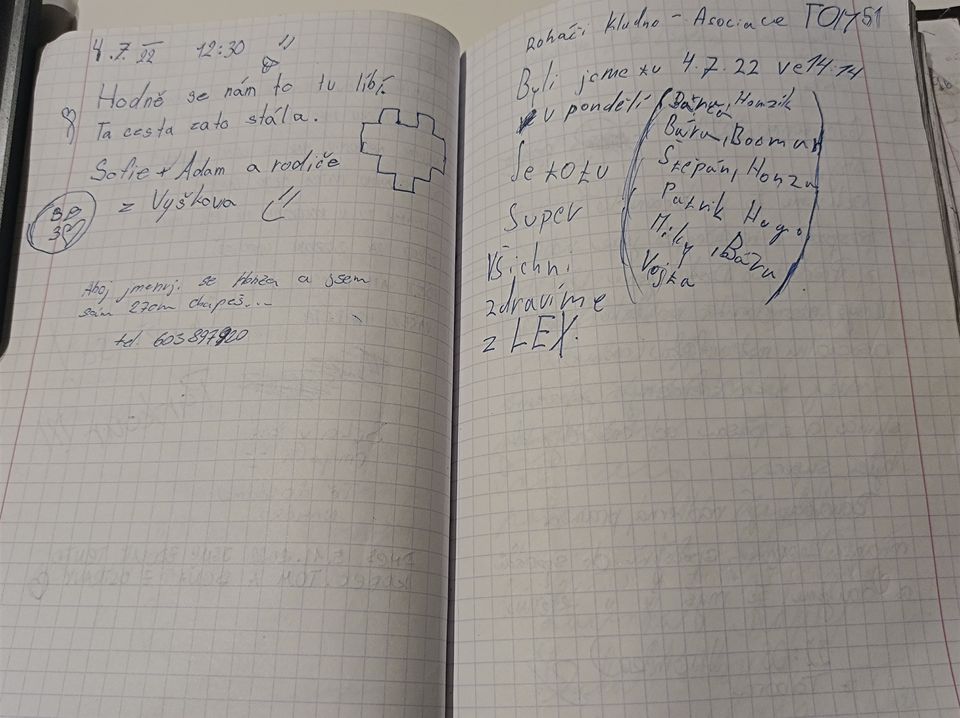 4.7.22 12:30
Hodně se nám to tu líbí.
Ta cesta zato stála.
Sofie + Adam a rodiče
z Vyškova
Ahoj jmenuj. se Honza a jsem
sám 27cm chapeš...
tel 603897920
Roháči Kladno - Asociace TOM 51
Byli jsme tu 4.7.22 ve 14:14
v pondělí
Je to tu
super
Všichni
zdravíme
z LEX.
(Bára, Honzík
Bára, Booman
Štěpán, Honza
Patrik Hugo
Miky, Bára
Vojta)